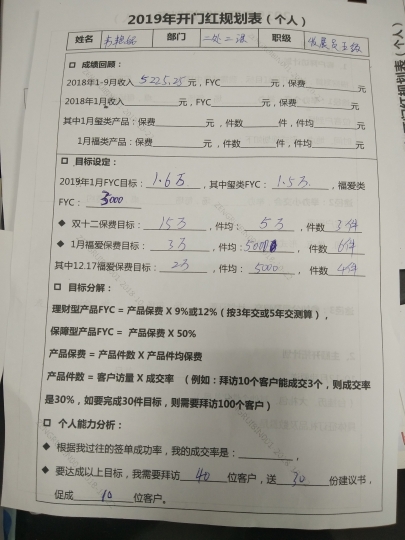 2019年开门红规划表（个人）
姓名 部门 二处二课 职级
□ 成绩回顾：
2018年1-9月收入 5225.25 元，FYC 元，保费 元
2018年1月收入 元，FYC 元，保费 元
其中1月玺类产品：保费 元，件数 件，件均 元
1月福类产品：保费 元，件数 件，件均 元
□ 目标设定：
2019年1月FYC目标： 1.6万 ，其中玺类FYC： 1.5万 ，福爱类
FYC： 3000
◆ 双十二保费目标： 15万 ，件均： 5万 ，件数 3件
◆ 1月福爱保费目标： 3万 ，件均： 5000 ，件数 6件
其中12.17福爱保费目标： 2万 ，件均： 5000 ，件数 4件
□ 目标分解：
理财型产品FYC = 产品保费 X 9%或12%（按3年交或5年交测算），
保障型产品FYC = 产品保费 X 50%
产品保费 = 产品件数 X 产品件均保费
产品件数 = 客户访量 X 成交率 （例如：拜访10个客户能成交3个，则成交率
是30%，如要完成30件目标，则需要拜访100个客户）
□ 个人能力分析：
◆ 根据我过往的签单成功率，我的成交率是： ，
◆ 要达成以上目标，我需要拜访 40 位客户，送 30 份建议书，
促成 10 位客户。